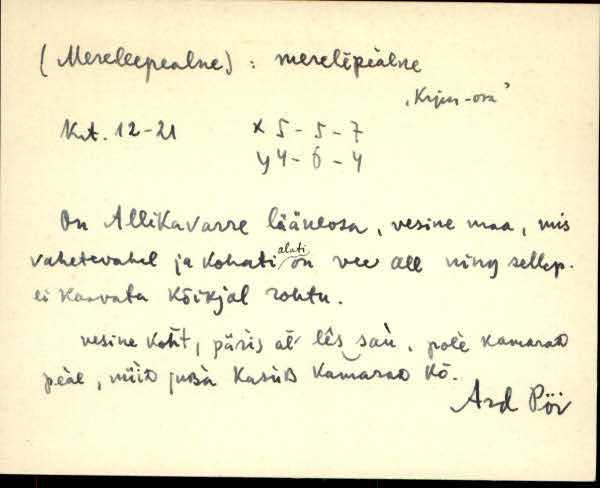 (Mereleepealne) : merelēpèàlne
"Krjus-osa"
Krt. 12-21 x 5-5-7
y 4-6-4
On Allikavarre lääneosa, vesine maa, mis
vahetevahel ja kohati alati on vee all ning sellep.
ei kasvata kõikjal rohtu.
vesine koht, päris lēs . pole kamarad
peàl, nüid juba kasùB kamarad kõ.
Ard Pöi